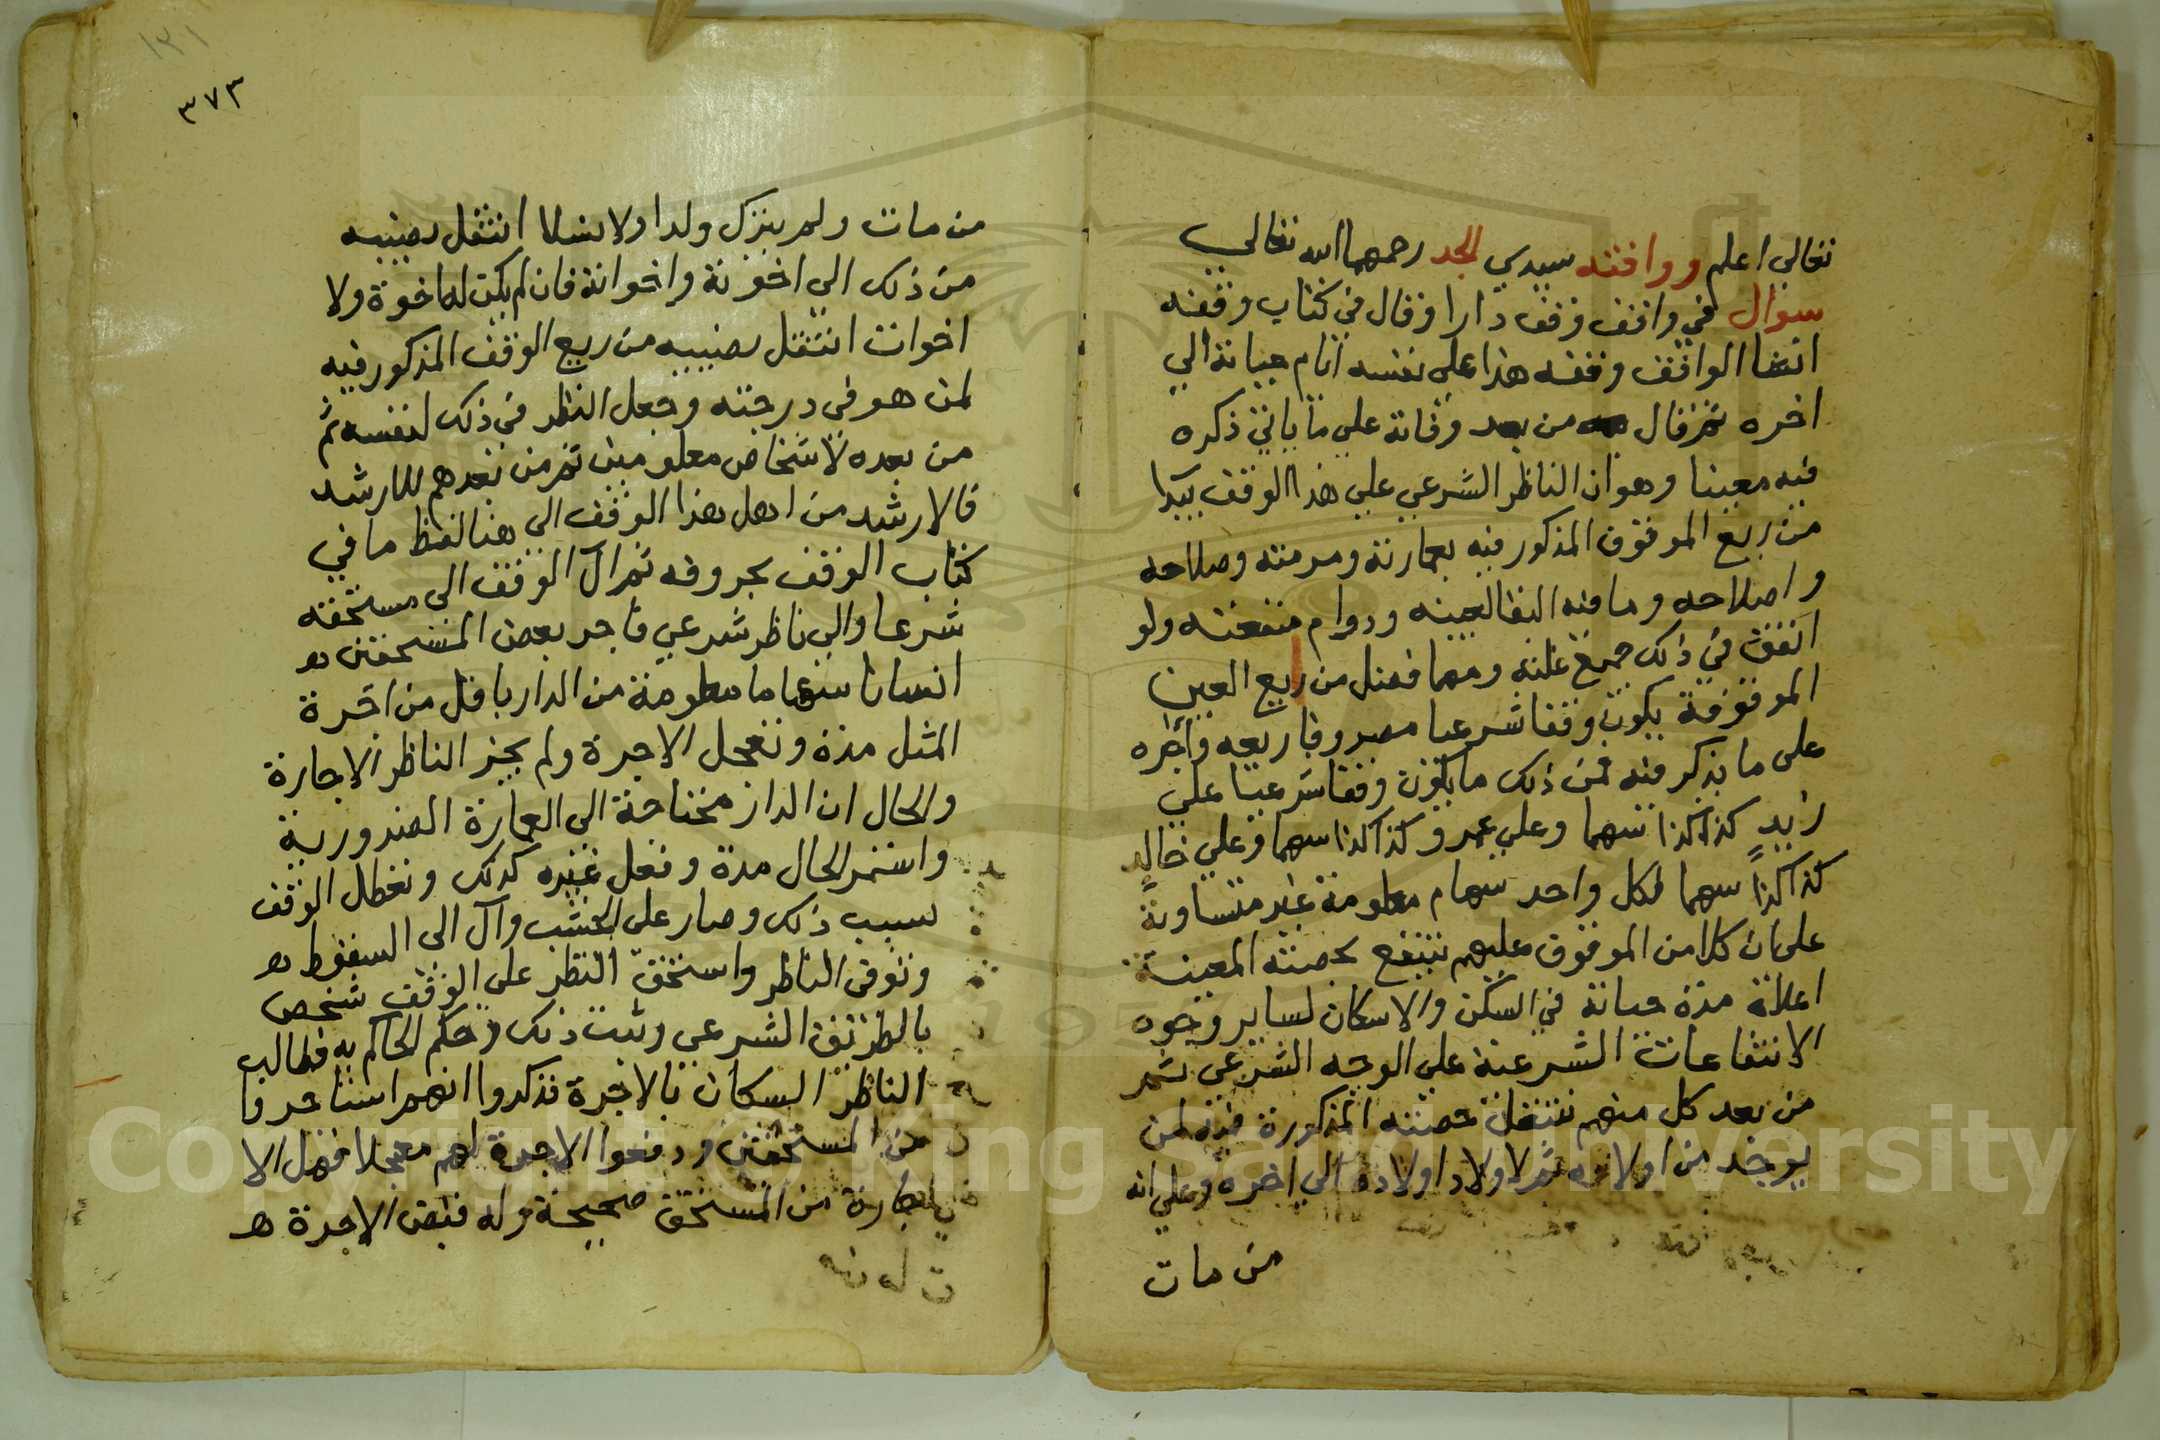 تعالى اعلم ووافقه سيدي الجد رحمهما الله تعالى
سوال في واقف وقف دارا وقال في كتاب وقفه
انشا الواقف وقفه هذا على نفسه ايام حياته الى
اخره ثم قال من بعد وفاته على ما ياتي ذكره
فيه معينا وهو ان الناظر الشرعي على هذا الوقف يبدا
من ريع الموقوف المذكور فيه بعمارته ومرمته وصلاحه
واصلاحه وما فيه البقا لعينه ودوام منفعته ولو
انفق في ذلك جميع غلته ومهما فضل من ريع العين
الموقوفة يكون وقفا شرعيا مصروفا ريعه واجره
على ما يذكر فيه فمن ذلك ما يكون وقفا شرعيا على
زيد كذا كذا سهما وعلى عمرو كذا كذا سهما وعلى خالد
كذا كذا سهما لكل واحد سهام معلومة غير متساوية
على ان كلا من الموقوف عليهم ينتفع بحصته المعينة
اعلاه مدة حياته في السكن والاسكان لساير وجوه
الانتفاعات الشرعية على الوجه الشرعي ثم
من بعد كل منهم تنتقل حصته المذكورة فيه لمن
يوجد من اولاده ثم لاولاد اولاده الى اخره وعلى انه
من مات
٣٧٣
١٣١
من مات ولم يترك ولدا ولا نسلا انتقل نصيبه
من ذلك الى اخوته واخواته فان لم يكن له اخوة ولا
اخوات انتقل نصيبه من ريع الوقف المذكور فيه
لمن هو في درجته وجعل النظر في ذلك لنفسه ثم
من بعده لاشخاص معلومين ثم من بعدهم للارشد
فالارشد من اهل هذا الوقف الى هنا لفظ ما في
كتاب الوقف بحروفه ثم آل الوقف الى مستحقه
شرعا والى ناظر شرعي فاجر بعض المستحقين
انسانا سهاما معلومة من الدار باقل من اجرة
المثل مدة وتعجل الاجرة ولم يجز الناظر الاجارة
والحال ان الدار محتاجة الى العمارة الضرورية
واستمر الحال مدة وفعل غيره كذلك وتعطل الوقف
بسبب ذلك وصار على الخشب وآل الى السقوط
وتوفى الناظر واستحق النظر على الوقف شخص
بالطريق الشرعي وثبت ذلك وحكم الحاكم به فطالب
الناظر السكان بالاجرة فذكروا انهم استاجروا
من المستحقين ودفعوا الاجرة لهم معجلا فهل الا
يجارة من المستحق صحيحة وله قبض الاجرة